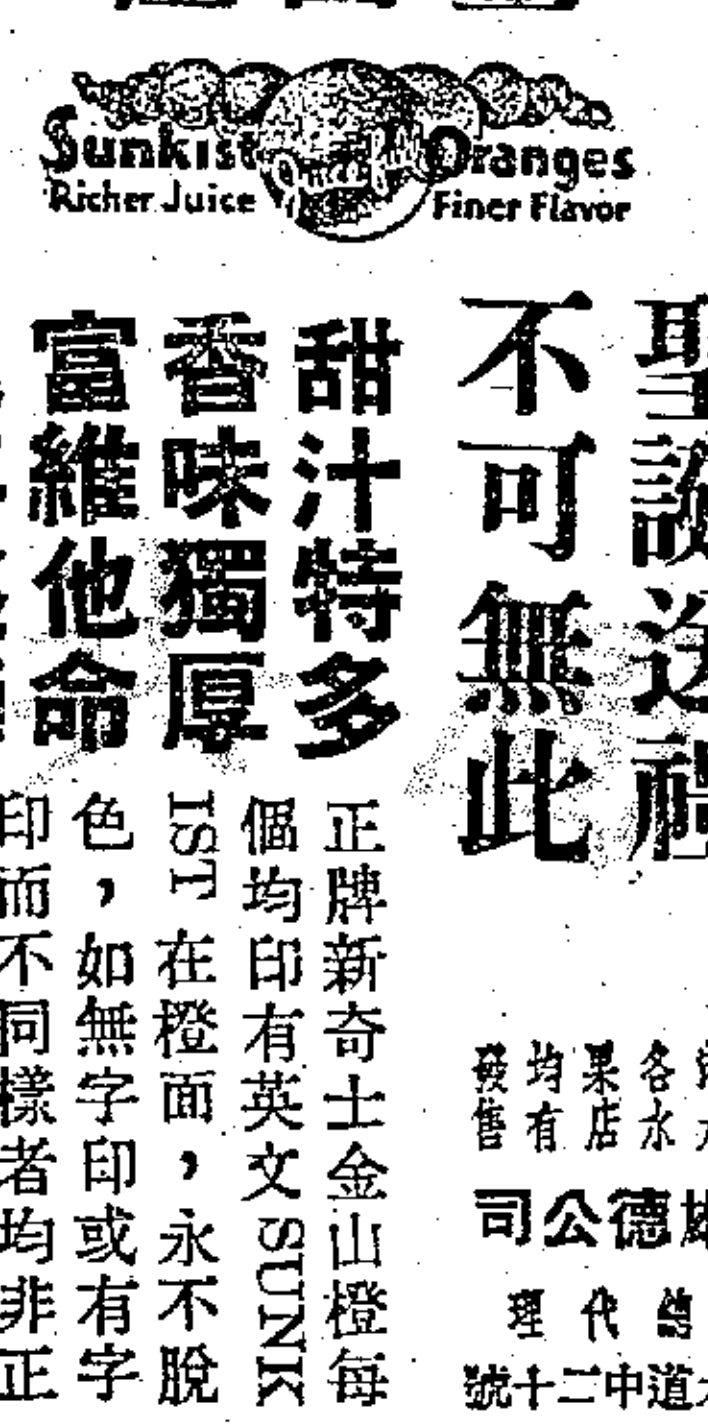 Sunkist Oranges
Richer Juice
Finer Flavor
聖誕送禮
不可無此
甜汁特多
香味獨厚
富維他命
正牌新奇士金山橙每
個均印有英文 SUNK
IST 在橙面，永不脫
色，如無字印或有字
印而不同樣者均非正
各水
果店
均有
發售
德公司
總代理
道中二十號